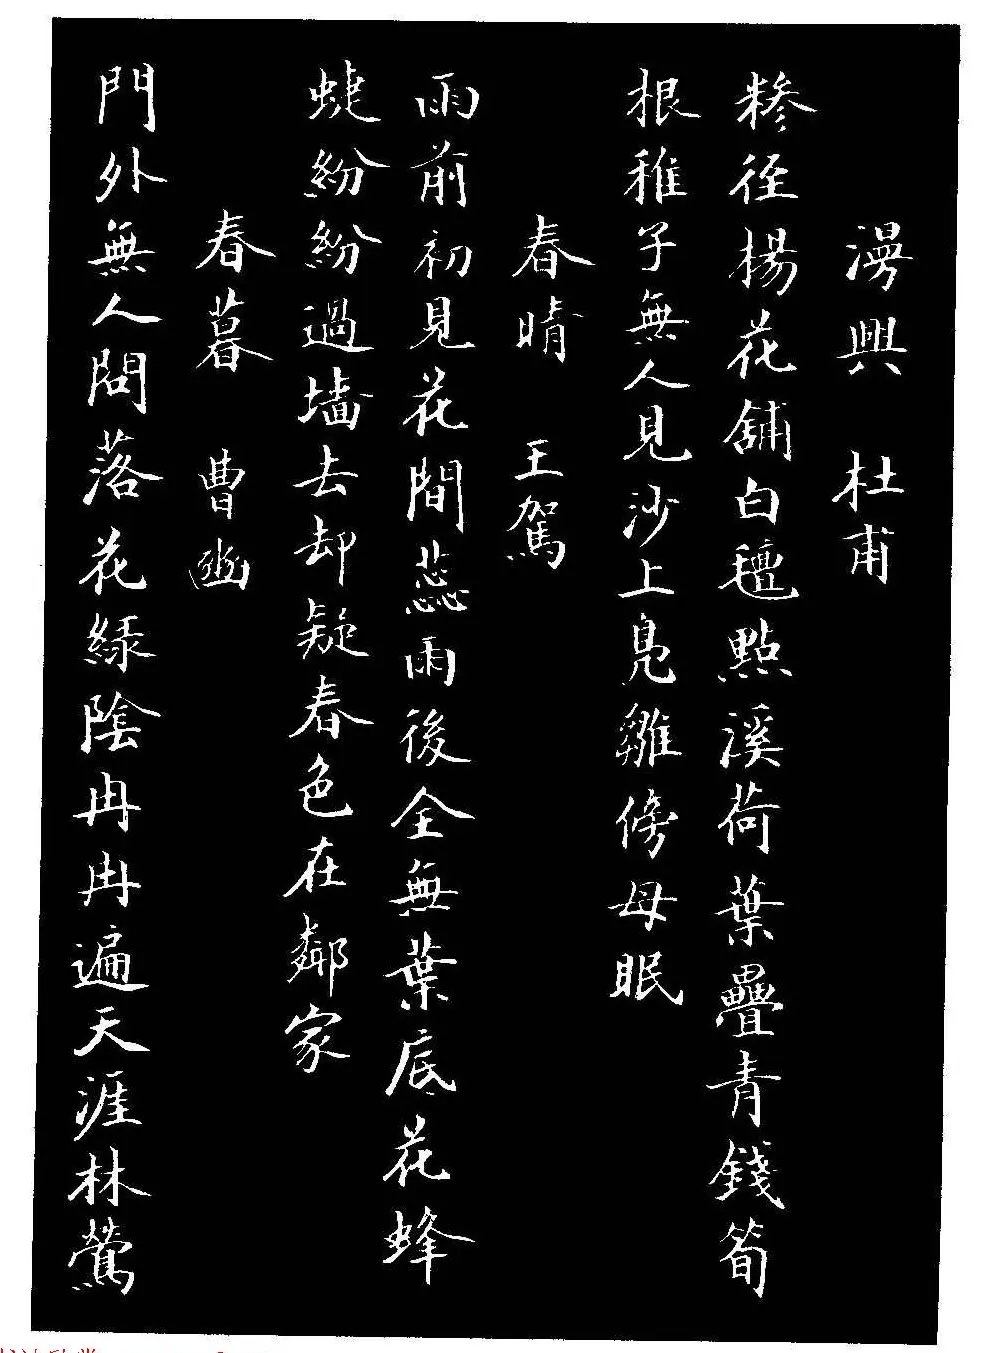 漫興 杜甫
糝徑楊花舖白氊點溪荷葉疊青錢筍
根稚子無人見沙上鳧雛傍母眠
春晴 王駕
雨前初見花間蕊雨後全無葉底花蜂
蜨紛紛過墻去却疑春色在鄰家
春暮 曹豳
門外無人問落花綠陰冉冉遍天涯林鶯